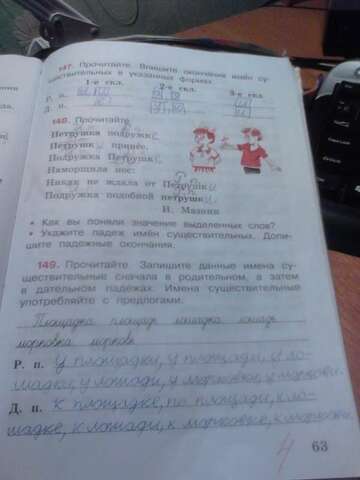 147. Прочитайте. Впишите окончания имён су-
ществительных в указанных формах.
1-е скл. 2-е скл. 3-е скл.
Р. п.
Д. п.
148. Прочитайте.
Петрушка подружке
Петрушки принёс.
Подружка Петрушки
Наморщила нос:
Никак не ждала от Петрушки
Подружка подобной петрушки.
И. Мазнин
• Как вы поняли значение выделенных слов?
• Укажите падеж имён существительных. Допи-
шите падежные окончания.
149. Прочитайте. Запишите данные имена су-
ществительные сначала в родительном, а затем
в дательном падежах. Имена существительные
употребляйте с предлогами.
Площадка площадь лошадка лошадь
морковка морковь
Р. п. У площадки, у площади, у ло-
шадки, у лошади, у морковки, у моркови.
Д. п. К площадке, по площади, к ло-
шадке, к лошади, к морковке, к моркови.
4
63